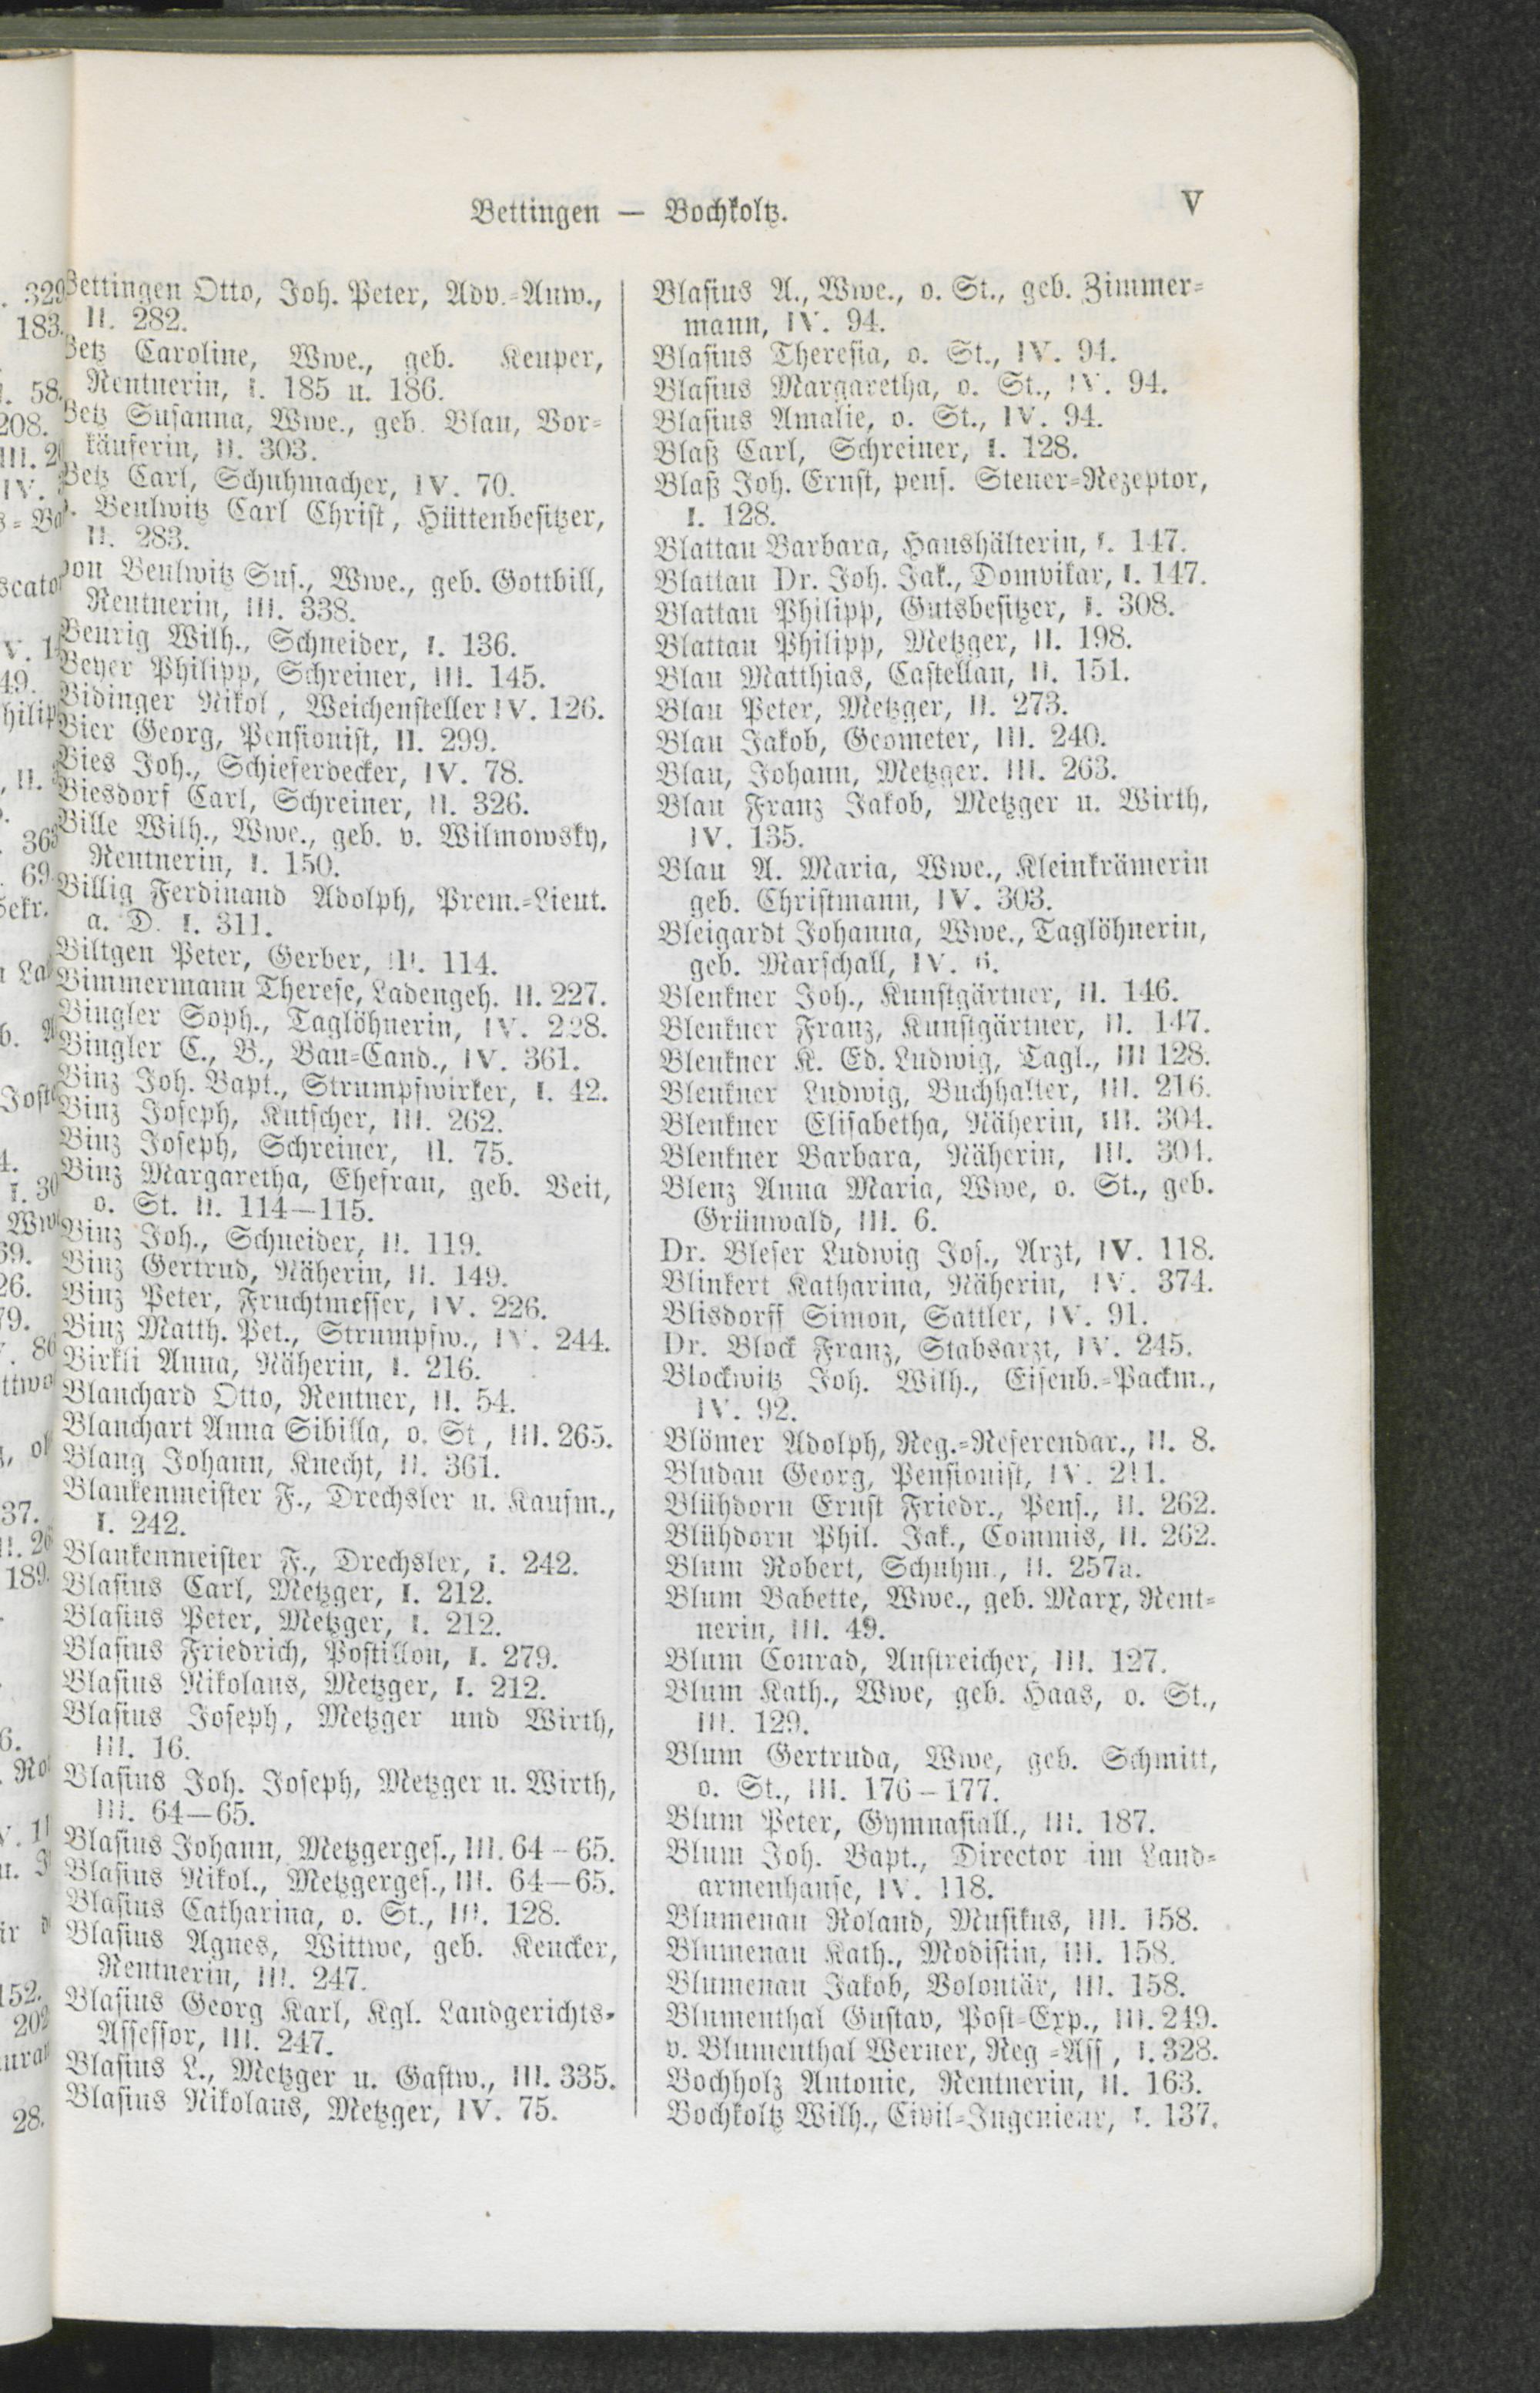 Bettingen — Bochkoltz.
V
Bettingen Otto, Joh. Peter, Adv.-Anw.,
II. 282.
Betz Caroline, Wwe., geb. Keuper,
Rentnerin, I. 185 u. 186.
Betz Susanna, Wwe., geb. Blau, Vor-
käuferin, II. 303.
Betz Carl, Schuhmacher, IV. 70.
v. Beulwitz Carl Christ, Hüttenbesitzer,
II. 283.
von Beulwitz Sus., Wwe., geb. Gottbill,
Rentnerin, III. 338.
Beurig Wilh., Schneider, I. 136.
Beyer Philipp, Schreiner, III. 145.
Bidinger Nikol, Weichensteller IV. 126.
Bier Georg, Pensionist, II. 299.
Bies Joh., Schieferdecker, IV. 78.
Biesdorf Carl, Schreiner, II. 326.
Bille Wilh., Wwe., geb. v. Wilmowsky,
Rentnerin, I. 150.
Billig Ferdinand Adolph, Prem.-Lieut.
a. D. I. 311.
Biltgen Peter, Gerber, III. 114.
Bimmermann Therese, Ladengeh. II. 227.
Bingler Soph., Taglöhnerin, IV. 228.
Bingler C., B., Bau-Cand., IV. 361.
Binz Joh. Bapt., Strumpfwirker, I. 42.
Binz Joseph, Kutscher, III. 262.
Binz Joseph, Schreiner, II. 75.
Binz Margaretha, Ehefrau, geb. Veit,
o. St. II. 114—115.
Binz Joh., Schneider, II. 119.
Binz Gertrud, Näherin, II. 149.
Binz Peter, Fruchtmesser, IV. 226.
Binz Matth. Pet., Strumpfw., IV. 244.
Birkli Anna, Näherin, I. 216.
Blanchard Otto, Rentner, II. 54.
Blanchart Anna Sibilla, o. St, III. 265.
Blang Johann, Knecht, II. 361.
Blankenmeister F., Drechsler u. Kaufm.,
I. 242.
Blankenmeister F., Drechsler, I. 242.
Blasius Carl, Metzger, I. 212.
Blasius Peter, Metzger, I. 212.
Blasius Friedrich, Postillon, I. 279.
Blasius Nikolaus, Metzger, I. 212.
Blasius Joseph, Metzger und Wirth,
III. 16.
Blasius Joh. Joseph, Metzger u. Wirth,
III. 64—65.
Blasius Johann, Metzgerges., III. 64—65.
Blasius Nikol., Metzgerges., III. 64—65.
Blasius Catharina, o. St., III. 128.
Blasius Agnes, Wittwe, geb. Keucker,
Rentnerin, III. 247.
Blasius Georg Karl, Kgl. Landgerichts-
Assessor, III. 247.
Blasius L., Metzger u. Gastw., III. 335.
Blasius Nikolaus, Metzger, IV. 75.
Blasius A., Wwe., o. St., geb. Zimmer-
mann, IV. 94.
Blasius Theresia, o. St., IV. 94.
Blasius Margaretha, o. St., IV. 94.
Blasius Amalie, o. St., IV. 94.
Blaß Carl, Schreiner, I. 128.
Blaß Joh. Ernst, pens. Steuer-Rezeptor,
I. 128.
Blattau Barbara, Haushälterin, I. 147.
Blattau Dr. Joh. Jak., Domvikar, I. 147.
Blattau Philipp, Gutsbesitzer, I. 308.
Blattau Philipp, Metzger, II. 198.
Blau Matthias, Castellan, II. 151.
Blau Peter, Metzger, II. 273.
Blau Jakob, Geometer, III. 240.
Blau, Johann, Metzger. III. 263.
Blau Franz Jakob, Metzger u. Wirth,
IV. 135.
Blau A. Maria, Wwe., Kleinkrämerin
geb. Christmann, IV. 303.
Bleigardt Johanna, Wwe., Taglöhnerin,
geb. Marschall, IV. 6.
Blenkner Joh., Kunstgärtner, II. 146.
Blenkner Franz, Kunstgärtner, II. 147.
Blenkner K. Ed. Ludwig, Tagl., III 128.
Blenkner Ludwig, Buchhalter, III. 216.
Blenkner Elisabetha, Näherin, III. 304.
Blenkner Barbara, Näherin, III. 304.
Blenz Anna Maria, Wwe, o. St., geb.
Grünwald, III. 6.
Dr. Bleser Ludwig Jos., Arzt, IV. 118.
Blinkert Katharina, Näherin, IV. 374.
Blisdorff Simon, Sattler, IV. 91.
Dr. Block Franz, Stabsarzt, IV. 245.
Blockwitz Joh. Wilh., Eisenb.-Packm.,
IV. 92.
Blömer Adolph, Reg.-Referendar., II. 8.
Bludau Georg, Pensionist, IV. 211.
Blühdorn Ernst Friedr., Pens., II. 262.
Blühdorn Phil. Jak., Commis, II. 262.
Blum Robert, Schuhm., II. 257a.
Blum Babette, Wwe., geb. Marx, Rent-
nerin, III. 49.
Blum Conrad, Anstreicher, III. 127.
Blum Kath., Wwe, geb. Haas, o. St.,
III. 129.
Blum Gertruda, Wwe, geb. Schmitt,
o. St., III. 176—177.
Blum Peter, Gymnasiall., III. 187.
Blum Joh. Bapt., Director im Land-
armenhause, IV. 118.
Blumenau Roland, Musikus, III. 158.
Blumenau Kath., Modistin, III. 158.
Blumenau Jakob, Volontär, III. 158.
Blumenthal Gustav, Post-Exp., III. 249.
v. Blumenthal Werner, Reg-Ass, I. 328.
Bochholz Antonie, Rentnerin, II. 163.
Bochkoltz Wilh., Civil-Ingenieur, I. 137.